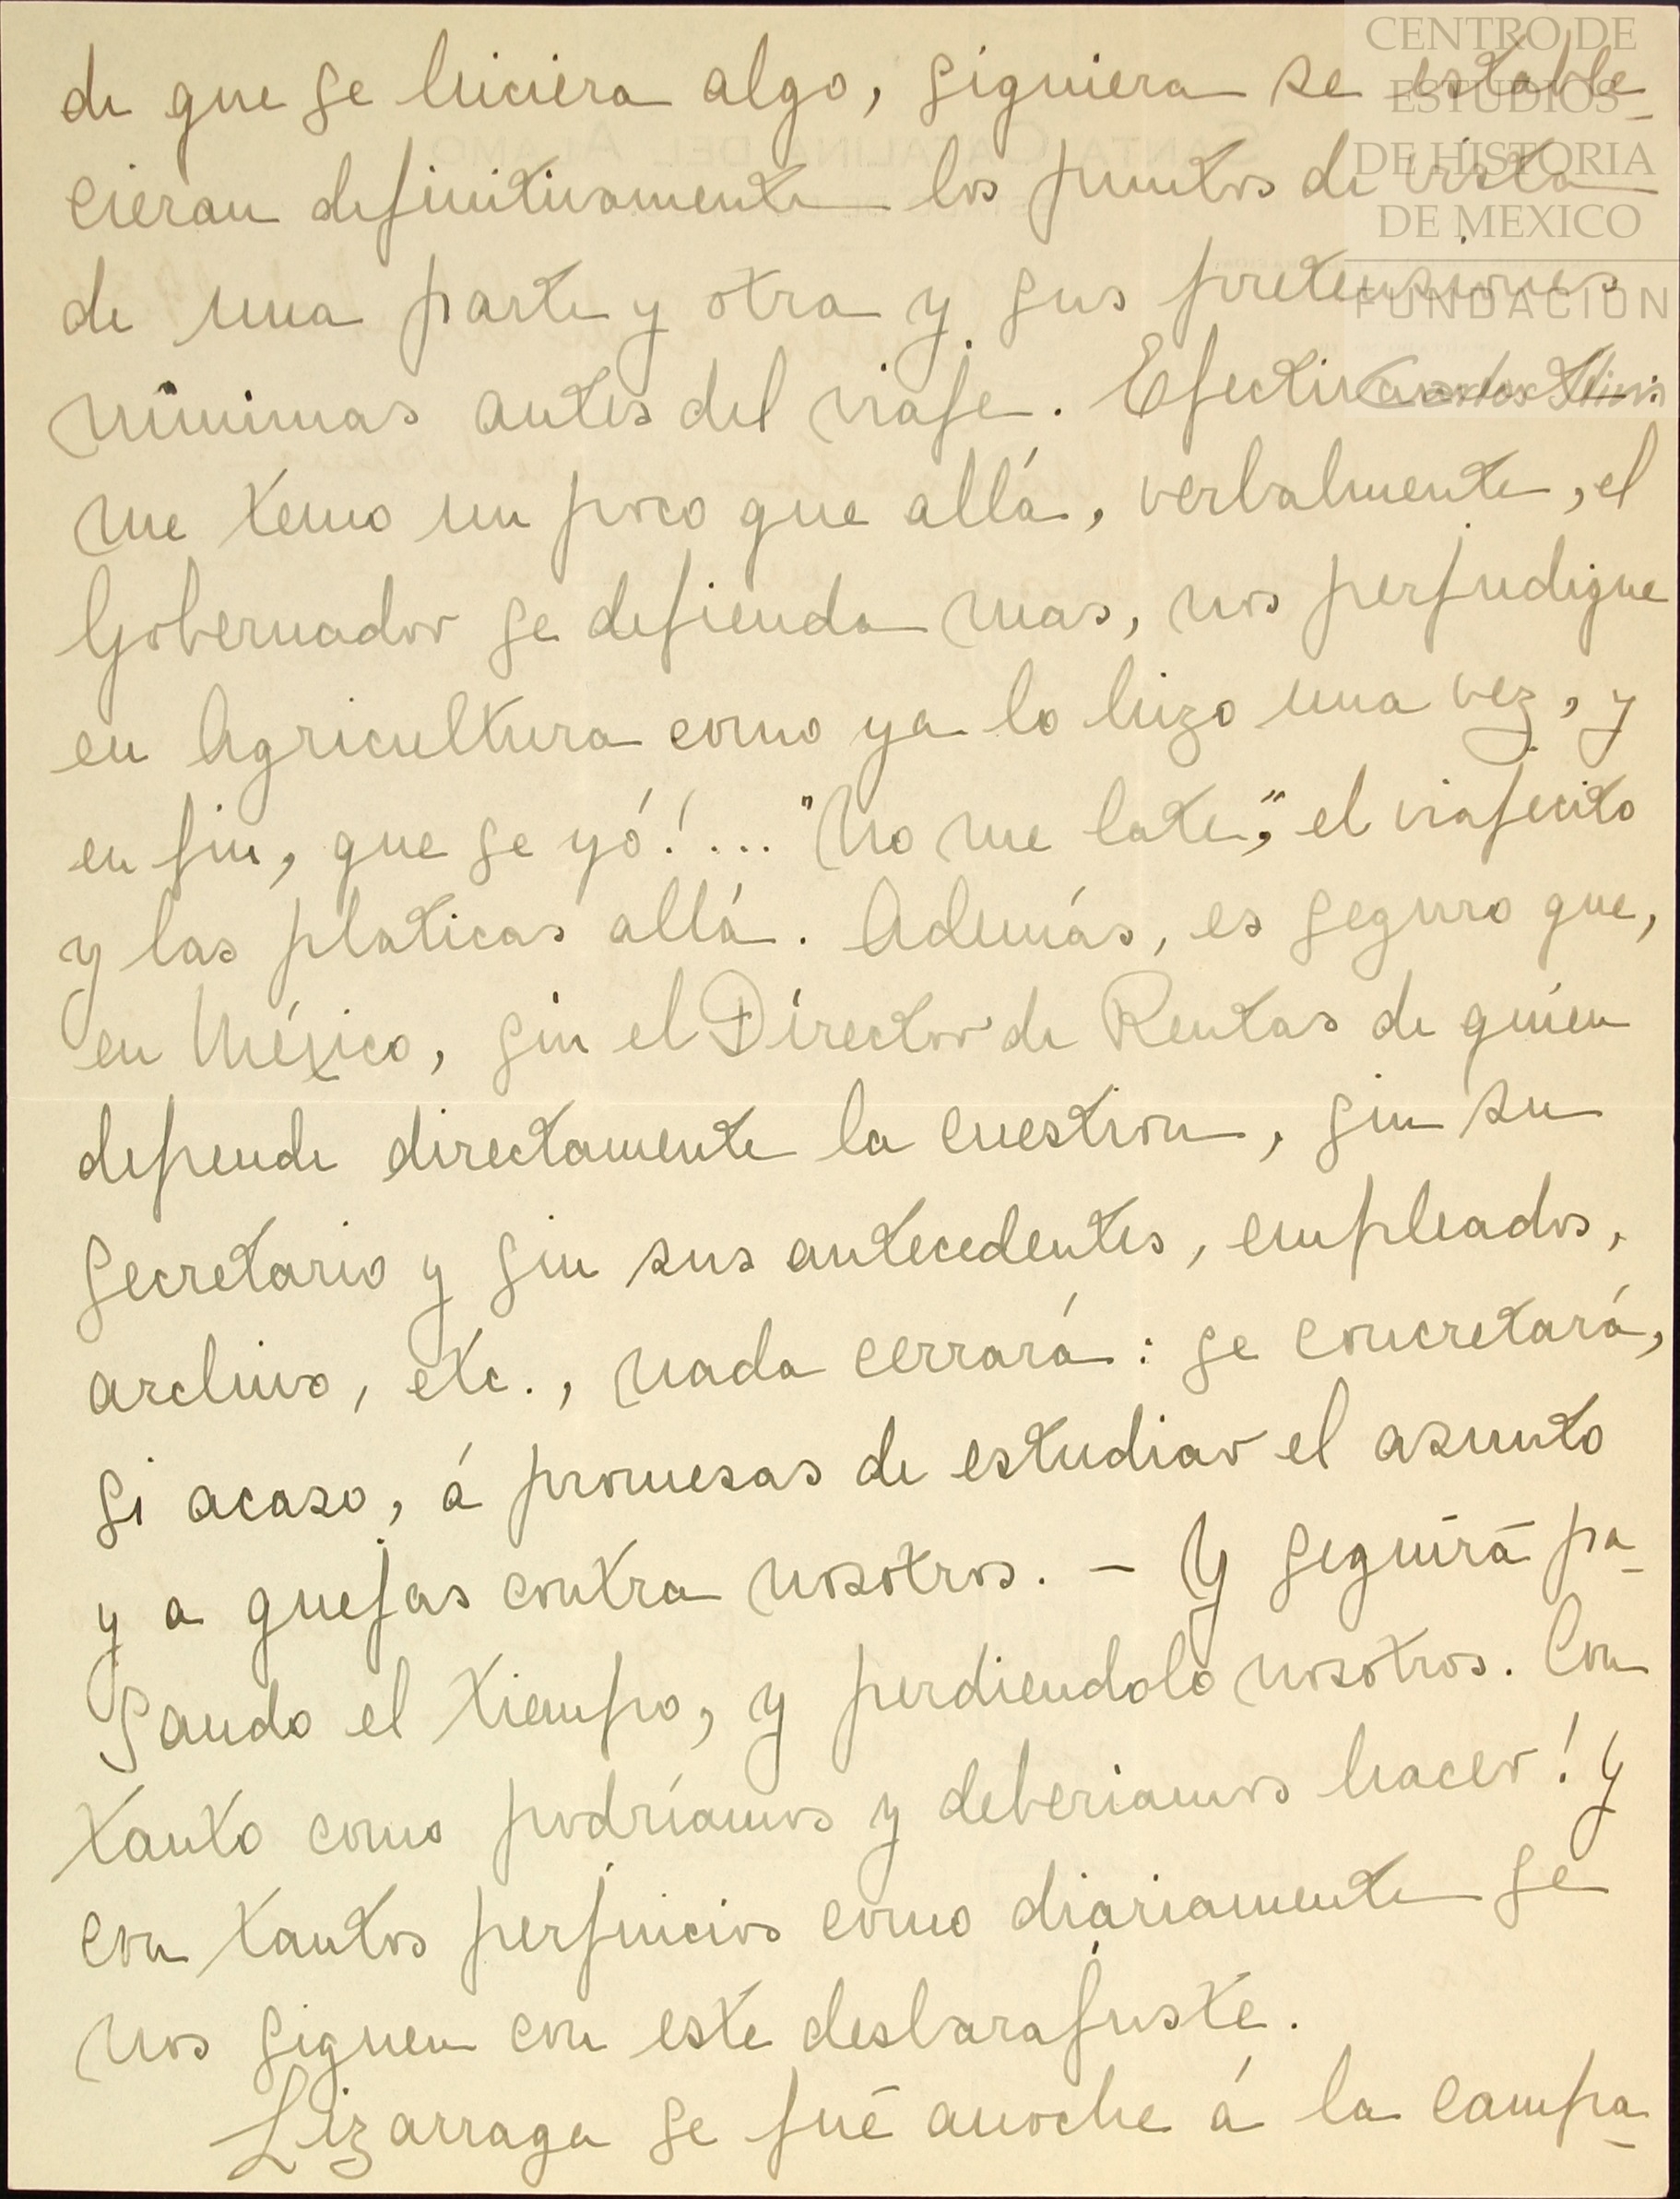 CENTRO DE
ESTUDIOS
DE HISTORIA
DE MEXICO
FUNDACION
Carlos Slim
SANTA CATALINA DEL ALAMO
de que se hiciera algo, siquiera se estable-
cieran definitivamente los puntos de vista
de una parte y otra y sus pretensiones
mínimas antes del viaje. Efectivam
me temo un poco que allá, verbalmente, el
Gobernador se defienda mas, nos perjudique
en Agricultura como ya lo hizo una vez, y
en fin, que se yó!... "No me late", el viajecito
y las platicas allá. Además, es seguro que,
en México, sin el Director de Rentas de quién
depende directamente la cuestion, sin su
Secretario y sin sus antecedentes, empleados,
archivo, etc., nada cerrará: se concretará,
si acaso, á promesas de estudiar el asunto
y a quejas contra nosotros. - Y seguirá pa-
sando el tiempo, y perdiendolo nosotros. Con
tanto como podríamos y deberiamos hacer! y
con tantos perjuicios como diariamente se
nos siguen con este desbarajuste.
Lizarraga se fué anoche á la campa-